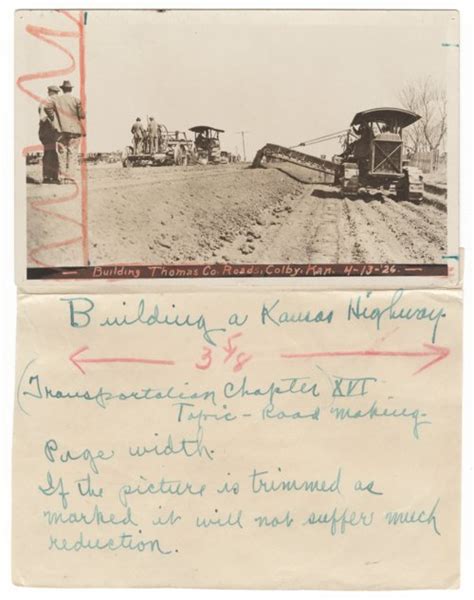 Building Thomas Co. Roads. Colby. Kan. 4-13-26.
Building a Kansas Highway.
3 5/8
(Transportation Chapter) XVI
Topic - Road making.
Page width.
If the picture is trimmed as
marked it will not suffer much
reduction.